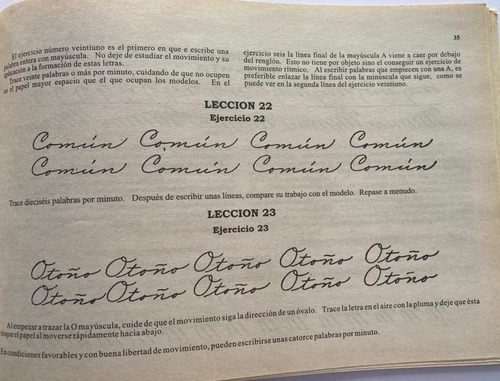 35
El ejercicio número veintiuno es el primero en que e escribe una
palabra entera con mayúscula. No deje de estudiar el movimiento y su
aplicación a la formación de estas letras.
Trace veinte palabras o más por minuto, cuidando de que no ocupen
en el papel mayor espacio que el que ocupan los modelos. En el
ejercicio seis la línea final de la mayúscula A viene a caer por debajo
del renglón. Esto no tiene por objeto sino el conseguir un ejercicio de
movimiento rítmico. Al escribir palabras que empiecen con una A, es
preferible enlazar la línea final con la minúscula que sigue, como se
puede ver en la segunda línea del ejercicio veintiuno.
LECCION 22
Ejercicio 22
Común Común Común Común
Común Común Común Común
Trace dieciséis palabras por minuto. Después de escribir unas líneas, compare su trabajo con el modelo. Repase a menudo.
LECCION 23
Ejercicio 23
Otoño Otoño Otoño Otoño Otoño
Otoño Otoño Otoño Otoño Otoño
Al empezar a trazar la O mayúscula, cuide de que el movimiento siga la dirección de un óvalo. Trace la letra en el aire con la pluma y deje que ésta
toque el papel al moverse rápidamente hacia abajo.
En condiciones favorables y con buena libertad de movimiento, pueden escribirse unas catorce palabras por minuto.